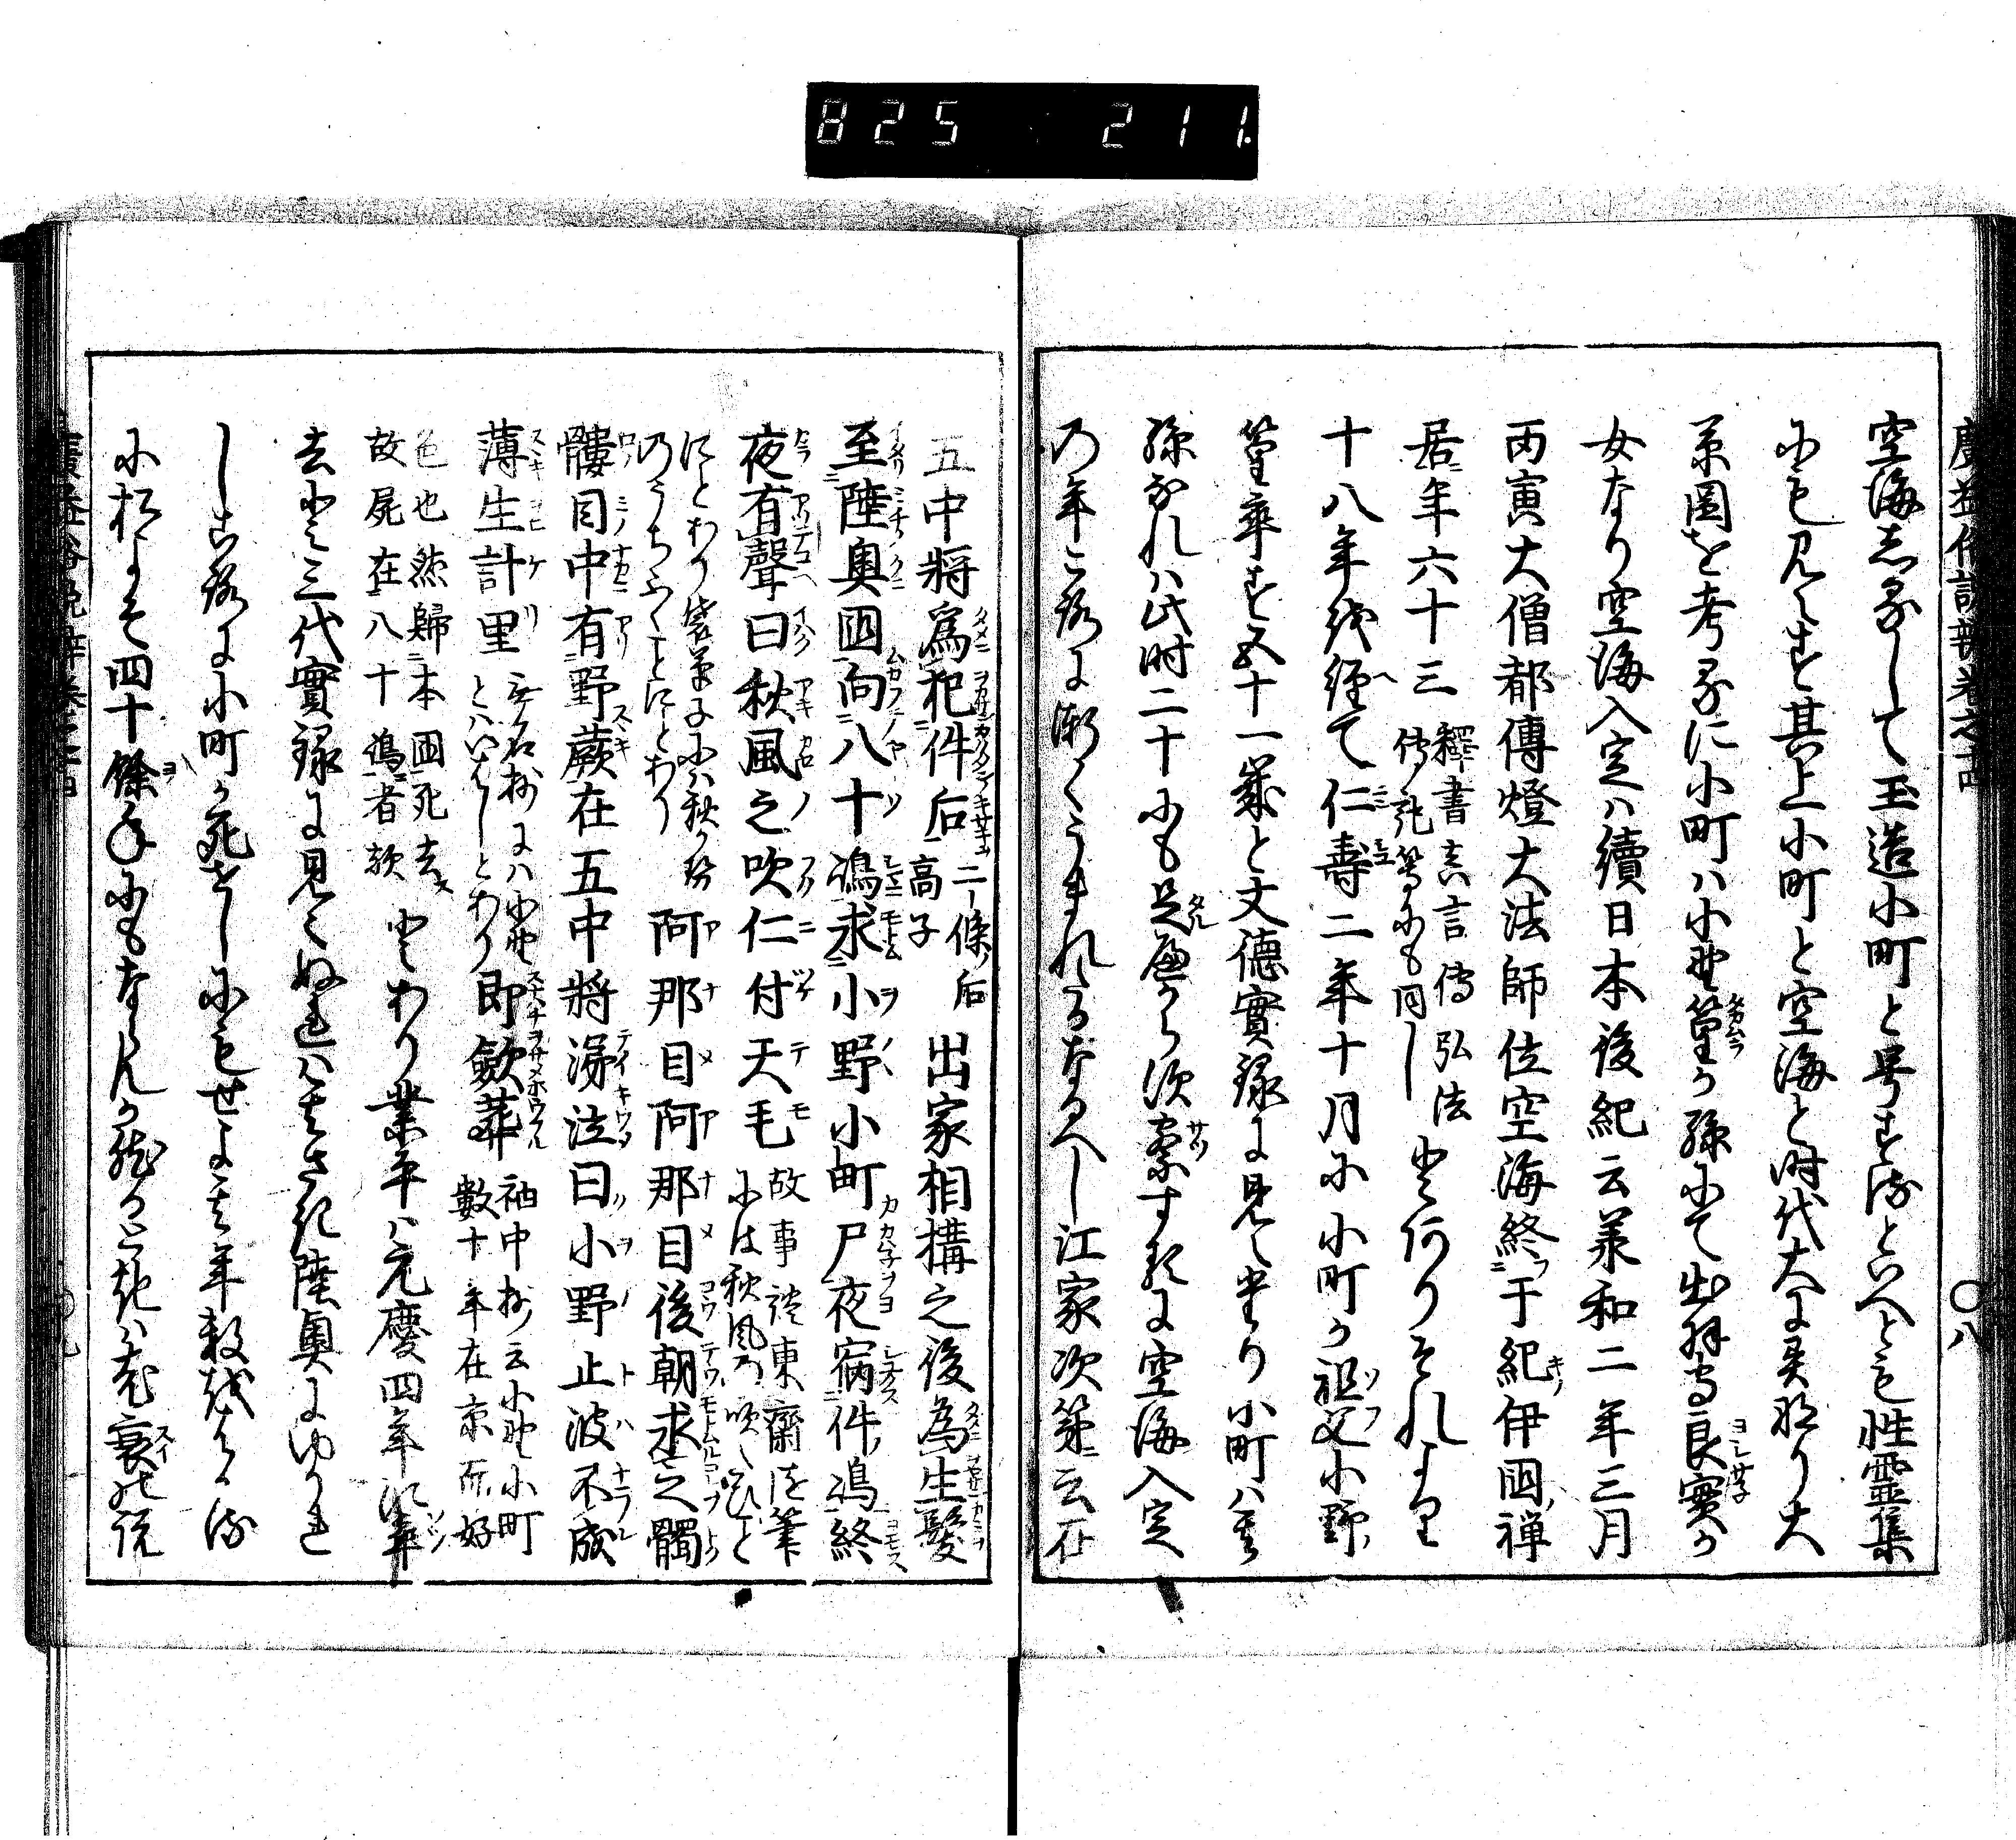 825 211
廣益俗説辨巻之十四
〇八
空海あらハして玉造小町と号すれとへとも性霊集
にも見えす其上小町と空海と時代大に異なり大
系圖を考るに小町ハ小野篁か孫にて出羽守良實か
女なり空海入定ハ續日本後紀云承和二年三月
丙寅大僧都傳燈大法師位空海終于紀伊國禅
居年六十三
釋書真言傳弘法
傳ノ説等にも同し
とありそれより
十八年を経て仁壽二年十月に小町か祖父小野
篁卒す五十一歳と文德實録に見えたり小町ハその
孫なれハ此時二十にも足へからす察するに空海入定
の年ころに漸くうまれたるなるへし江家次第云在
五中將爲犯件后
二條ノ后
高子
出家相構之後為生髮
至陸奥國向八十嶋求小野小町尸夜宿件嶋終
夜有聲曰秋風之吹仁付天毛
故事談東齋随筆
には秋風の吹たひこと
にとあり袋草子にハ秋か勢
のうちふくことにとあり
阿那目阿那目後朝求之髑
髏目中有野蕨在五中將涕泣曰小野止波不成
薄生計里
無名抄にハ小野
とハいはしとあり
即歛葬
袖中抄云小野小町
數十年在京而好
色也然歸本國死去
故屍在八十嶋者歟
とあり業平ハ元慶四年に卒
去と三代實録に見えぬれハそのさき陸奥にゆかれ
しころに小町か死せしにもせよその年数をはかる
に極よそ四十餘年にもなんか然るに右ハ老衰の説